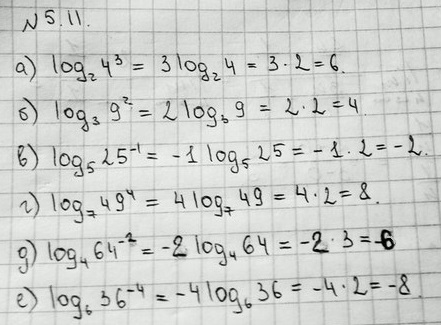 №5.11.
а) log₂ 4³ = 3 log₂ 4 = 3 · 2 = 6.
б) log₃ 9² = 2 log₃ 9 = 2 · 2 = 4.
в) log₅ 25⁻¹ = -1 log₅ 25 = -1 · 2 = -2.
г) log₇ 49⁴ = 4 log₇ 49 = 4 · 2 = 8.
д) log₄ 64⁻² = -2 log₄ 64 = -2 · 3 = -6
е) log₆ 36⁻⁴ = -4 log₆ 36 = -4 · 2 = -8.